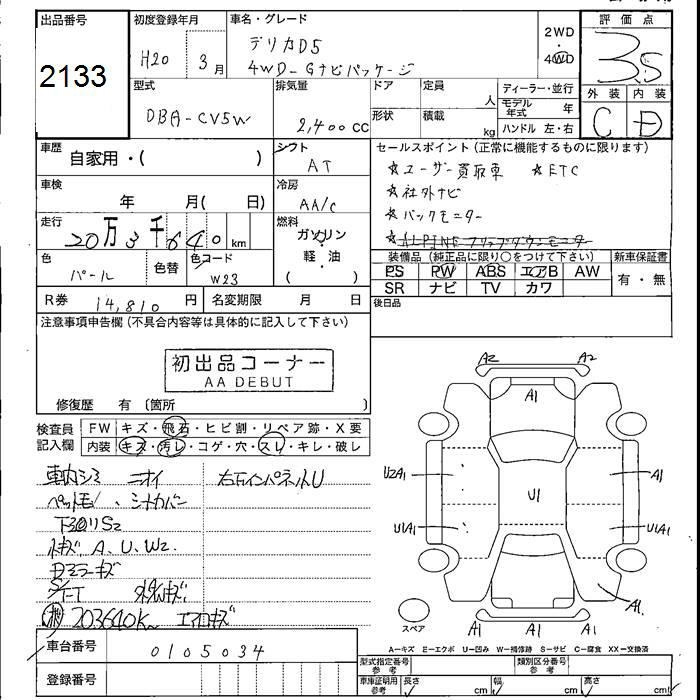 出品番号
2133
初度登録年月
H20 3月
車名・グレード
デリカD5
4WD-Gナビパッケージ
2WD
4WD
評価点
3.5
外装 内装
C D
型式
DBA-CV5W
排気量
2,400cc
ドア
形状
定員
人
積載
kg
ディーラー・並行
モデル年式 年
ハンドル 左・右
車歴
自家用・( )
シフト
AT
車検
年 月( 日)
冷房
AA/C
走行
20万3千640km
燃料
ガソリン
軽・油
( )
色
パール
色替
色コード
W23
R券 14,810円
名変期限 月 日
セールスポイント(正常に機能するものに限ります)
☆ユーザー買取車 ☆ETC
☆社外ナビ
☆バックモニター
☆ALPINEフリップダウンモニター
装備品(純正品に限り○をつけて下さい)
PS PW ABS エアB AW
SR ナビ TV カワ
新車保証書
有・無
後日品
注意事項申告欄(不具合内容等は具体的に記入して下さい)
初出品コーナー
AA DEBUT
修復歴 有 〔箇所 〕
検査員記入欄
FW キズ・飛石・ヒビ割・リペア跡・X要
内装 キズ・汚レ・コゲ・穴・スレ・キレ・破レ
車内シミ ニオイ 右下インパネットU
ペットモウ、シートカバー
下廻りS2
A、U、W2.
203640K
車台番号 0105034
登録番号
A2 A2
A1
U2A1 A1
U1
U1A1 U1A1
A1
A1 A1 A1
スペア
A−キズ E−エクボ U−凹み W−補修跡 S−サビ C−腐食 XX−交換済
型式指定番号
参考
類別区分番号
参考
車庫証明用
参考
長さ cm 幅 cm 高さ cm